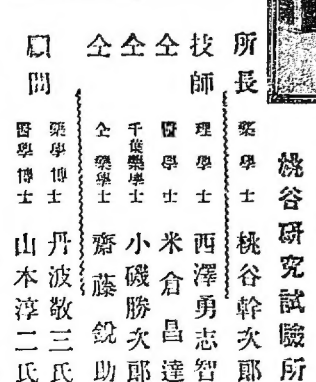 桃谷研究試驗所
所長 藥學士 桃谷幹次郎
技師 理學士 西澤勇志智
仝 醫學士 米倉昌達
仝 千葉藥學士 小磯勝次郎
仝 仝 藥學士 齋藤鋭助
顧問 藥學博士 丹波敬三氏
醫學博士 山本淳二氏